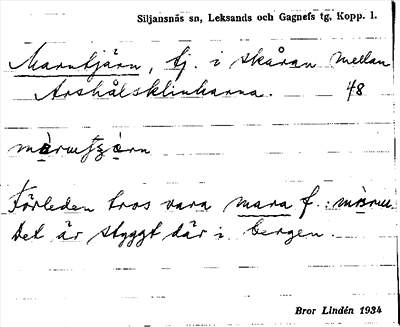 Siljansnäs sn, Leksands och Gagnefs tg, Kopp. l.
Marntjärn, tj. i skåran mellan
Arshålsklinkarna. 48
Förleden tros vara mara f.:
Det är styggt där i bergen.
Bror Lindén 1934